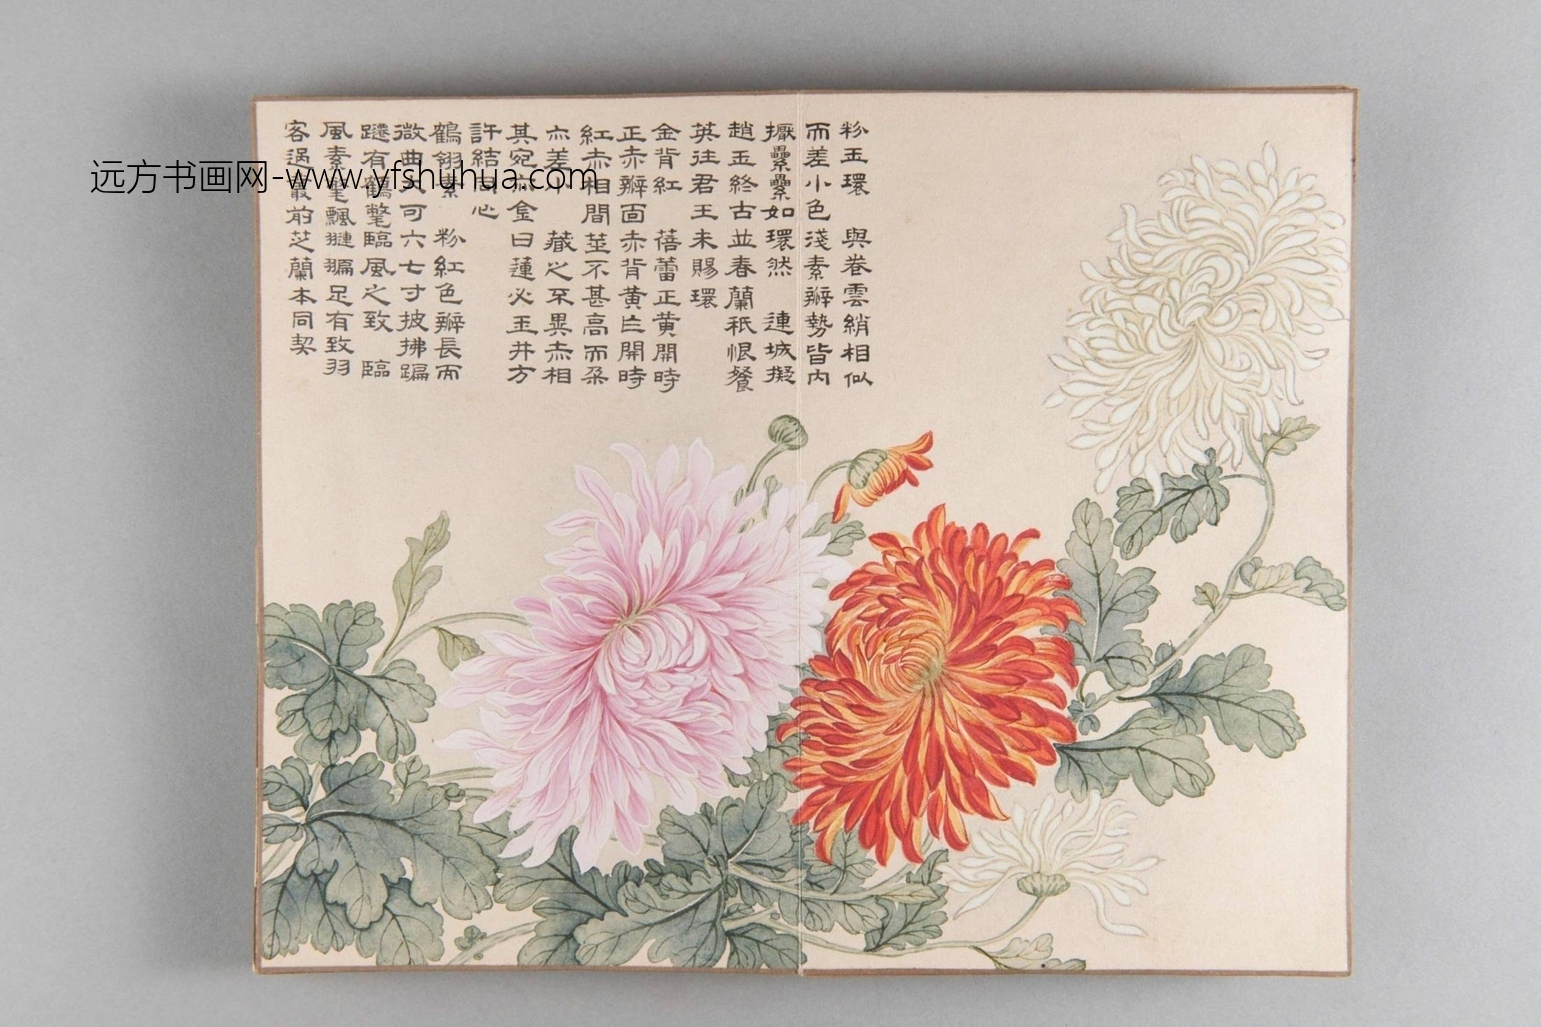 粉玉環　與卷雲綃相似
而差小色淺素瓣勢皆內
擫纍纍如環然　連城擬
趙玉終古並春蘭秖恨餐
英往君王未賜環
金背紅　蓓蕾正黃開時
正赤瓣面赤背黃亦開時
紅赤相間莖不甚高而朶
亦差小　藏心不異赤相
其宛心金日蓮必玉井方
許結同心
鶴翎素　粉紅色瓣長而
微曲大可六七寸披拂蹁
躚有鶴氅臨風之致　臨
風素氅飄褷褊足有致羽
客渦最前芝蘭本同契
远方书画网-www.yfshuhua.com